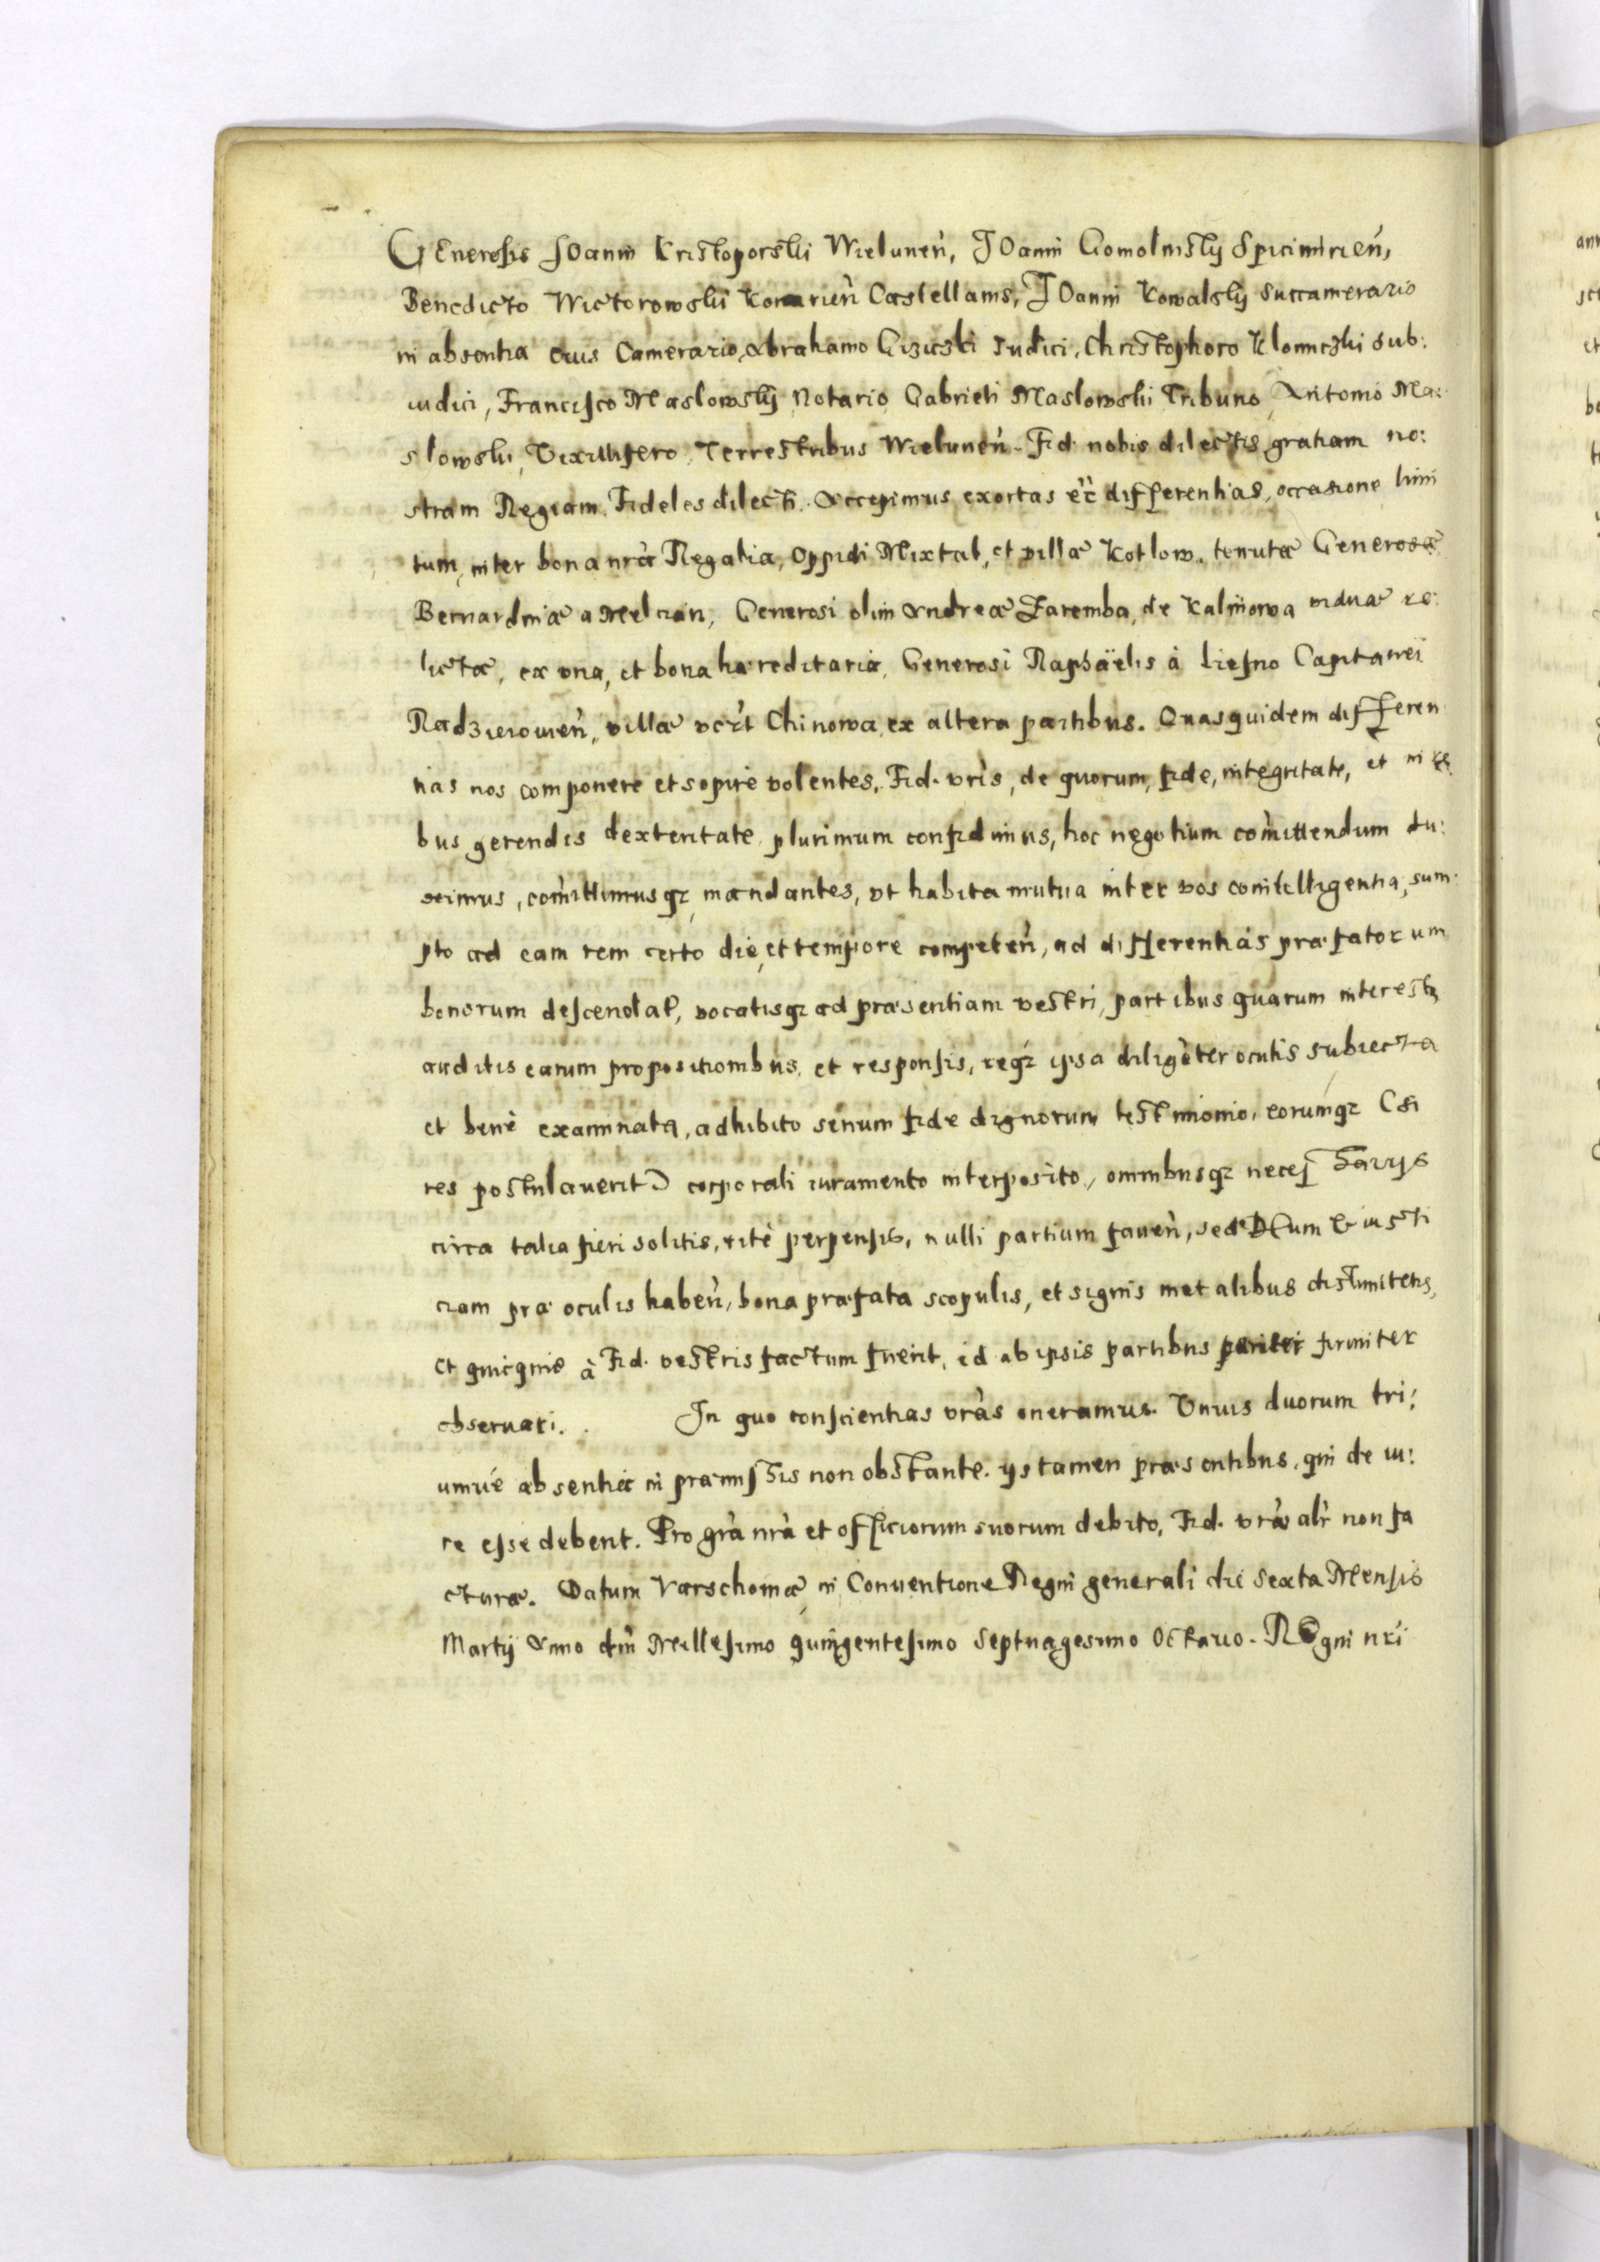 GEnerosis IOanni Kristoporski Wielunen̄, IOanni Gomolinsky Spicimirien̄,
Benedicto Wictorowski Konarien̄ Castellanis, IOanni Kowalsky Succamerario
in absentia eius Camerario, Abrahamo Gizicski Iudici, Christophoro Klomczki sub:
iudici, Francisco Maslowsky Notario Gabrieli Maslowski Tribuno, Antonio Ma:
slowski, Vixillifero, Terrestribus Wielunen̄. Fid. nobis dilectis, gratiam no:
stram Regiam. Fideles dilecti. Accepimus exortas ee differentias, occasione limi
tum, inter bona nr̄a Regalia, Oppidi Mixtat, et villæ Kotlow, tenutæ Generosæ
Bernardinæ a Melczin, Generosi olim Andreæ Zaremba, de Kalinowa viduæ re:
lictæ, ex vna, et bona hæreditaria, Generosi Raphaëlis à Liesno Capitanei
Radzieiowien̄, villæ vert Chinowa, ex altera partibus. Quas quidem differen
tias nos componere et sopire volentes, Fid. vr̄is, de quorum, fide, integritate, et in re
bus gerendis dexteritate plurimum confidimus, hoc negotium com̄ittendum du:
ximus, com̄ittimusq;, mandantes, vt habita mutua inter vos conitelligentia, sum:
pto ad eam rem certo die, et tempore competen̄, ad differentias præfatorum
bonorum descendat, vocatisq; ad præsentiam vestri, partibus quarum interest,
auditis earum propositionibus, et responsis, req; ipsa diligēter oculis subiecta
et benè examinata, adhibito senum fide dignorum testimonio, eorumq; (si
res postulauerit) corporali iuramento interposito, omnibusq; necessarijs
circa talia fieri solitis, ritè perpensis, nulli partium fauen̄, sed DEum & iusti
ciam præ oculis haben̄, bona præfata scopulis, et signis metalibus distimitetis,
et quicquid à Fid. vestris factum fuerit, id ab ipsis partibus firmiter
obseruari. In quo conscientias vr̄as oneramus. Vnius duorum tri:
umue absentia in præmissis non obstante. ijs tamen præsentibus, qui de iu:
re esse debent. Pro gr̄a nr̄a et officiorum suorum debito, Fid. vr̄æ alr̄ non fa
cturæ. Datum Varschouiæ in Conuentione Regni generali die sexta Mensis
Martij Anno dn̄i Millesimo quingentesimo septuagesimo Octauo. REgni nr̄i